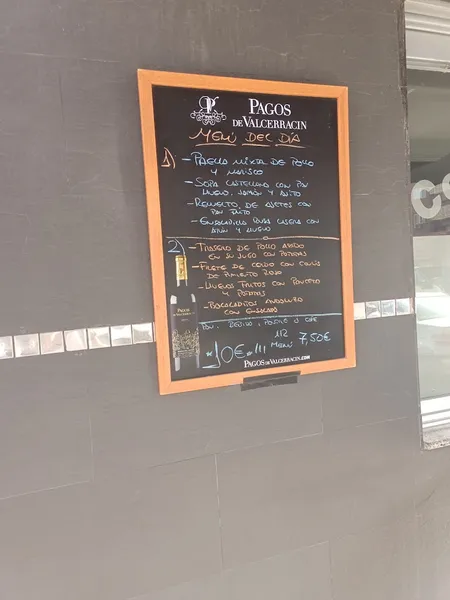 PAGOS
DE VALCERRACIN
MENÚ DEL DÍA
1) - PAELLA MIXTA DE POLLO
Y MARISCO
- SOPA CASTELLANA CON PAN
HUEVO, JAMÓN Y
- REVUELTO DE AJETES CON
PAN FRITO
- ENSALADILLA RUSA CASERA CON
ATÚN Y HUEVO
2) - TRASERO DE POLLO ASADO
EN SU JUGO CON PATATAS
- FILETE DE CERDO CON
DE PIMIENTO ROJO
- HUEVOS FRITOS CON PANCETA
Y PATATAS
- BACALADITOS ANDALUZA
CON ENSALADA
PAN, BEBIDA, POSTRE O CAFÉ
10€
1/2
MENÚ
7,50€
PAGOS DE VALCERRACIN.COM
CO